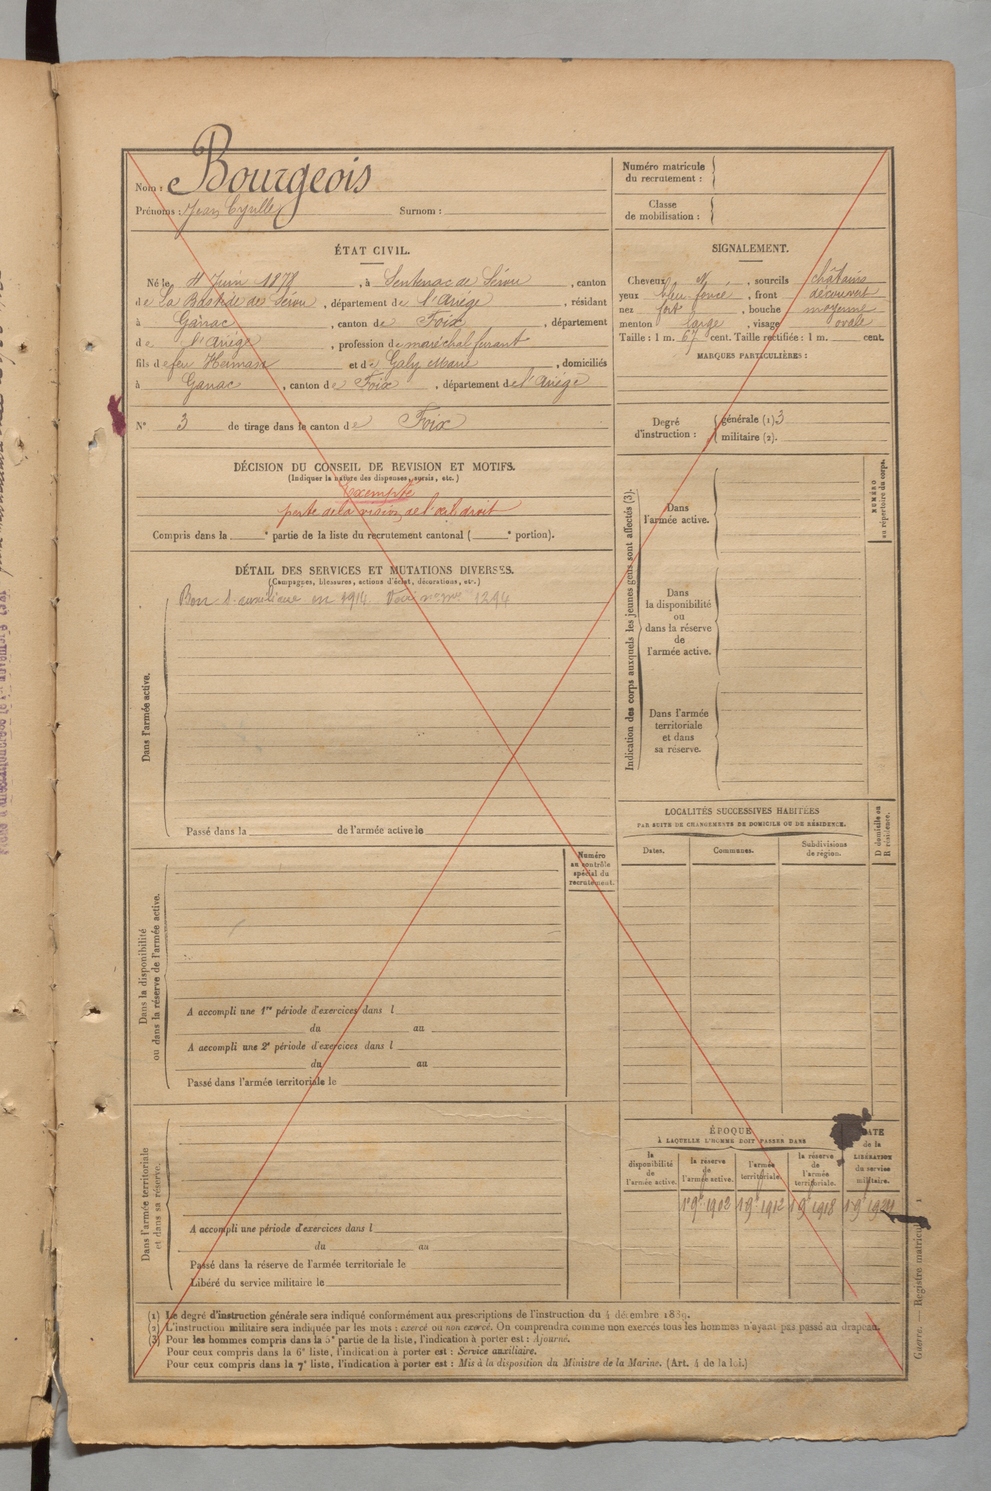 Nom : Bourgeois
Prénoms : Jean Cyrille Surnom :
Numéro matricule
du recrutement :
Classe
de mobilisation :
ÉTAT CIVIL.
Né le 4 Juin 1878, à Sentenac de Sérou, canton
de La Bastide de Sérou, département de l'Ariège, résidant
à Ganac, canton de Foix, département
de l'Ariège, profession de maréchal ferrant
fils de feu Herman et de Galy Marie, domiciliés
à Ganac, canton de Foix, département de l'Ariège
N° 3 de tirage dans le canton de Foix
SIGNALEMENT.
Cheveux d°, sourcils châtains
yeux bleu foncé, front découvert
nez fort, bouche moyenne
menton large, visage ovale
Taille : 1 m. 67 cent. Taille rectifiée : 1 m. cent.
MARQUES PARTICULIÈRES :
Degré
d'instruction :
générale (1). 3
militaire (2).
DÉCISION DU CONSEIL DE REVISION ET MOTIFS.
(Indiquer la nature des dispenses, sursis, etc.)
Exempté
perte de la vision de l'œil droit
Compris dans la e partie de la liste du recrutement cantonal ( e portion).
DÉTAIL DES SERVICES ET MUTATIONS DIVERSES.
(Campagnes, blessures, actions d'éclat, décorations, etc.)
Dans l'armée active.
Bon S. auxiliaire en 1914. Voir n° mle 1294
Passé dans la de l'armée active le
Indication des corps auxquels les jeunes gens sont affectés (3).
NUMÉRO
au répertoire du corps.
Dans
l'armée active.
Dans
la disponibilité
ou
dans la réserve
de
l'armée active.
Dans l'armée
territoriale
et dans
sa réserve.
LOCALITÉS SUCCESSIVES HABITÉES
PAR SUITE DE CHANGEMENTS DE DOMICILE OU DE RÉSIDENCE.
Dates.
Communes.
Subdivisions
de région.
D domicile ou
R résidence.
Numéro
au contrôle
spécial du
recrutement.
Dans la disponibilité
ou dans la réserve de l'armée active.
A accompli une 1re période d'exercices dans l
du au
A accompli une 2e période d'exercices dans l
du au
Passé dans l'armée territoriale le
Dans l'armée territoriale
et dans sa réserve.
A accompli une période d'exercices dans l
du au
Passé dans la réserve de l'armée territoriale le
Libéré du service militaire le
ÉPOQUE
À LAQUELLE L'HOMME DOIT PASSER DANS
la
disponibilité
de
l'armée active.
la réserve
de
l'armée active.
l'armée
territoriale.
la réserve
de
l'armée
territoriale.
DATE
de la
LIBÉRATION
du service
militaire.
1er 9bre 1902 1er 9bre 1912 1er 9bre 1918
(1) Le degré d'instruction générale sera indiqué conformément aux prescriptions de l'instruction du 4 décembre 1889.
(2) L'instruction militaire sera indiquée par les mots : exercé ou non exercé. On comprendra comme non exercés tous les hommes n'ayant pas passé au drapeau.
(3) Pour les hommes compris dans la 5e partie de la liste, l'indication à porter est : Ajourné.
Pour ceux compris dans la 6e liste, l'indication à porter est : Service auxiliaire.
Pour ceux compris dans la 7e liste, l'indication à porter est : Mis à la disposition du Ministre de la Marine. (Art. 4 de la loi.)
Guerre. — Registre matricule 1